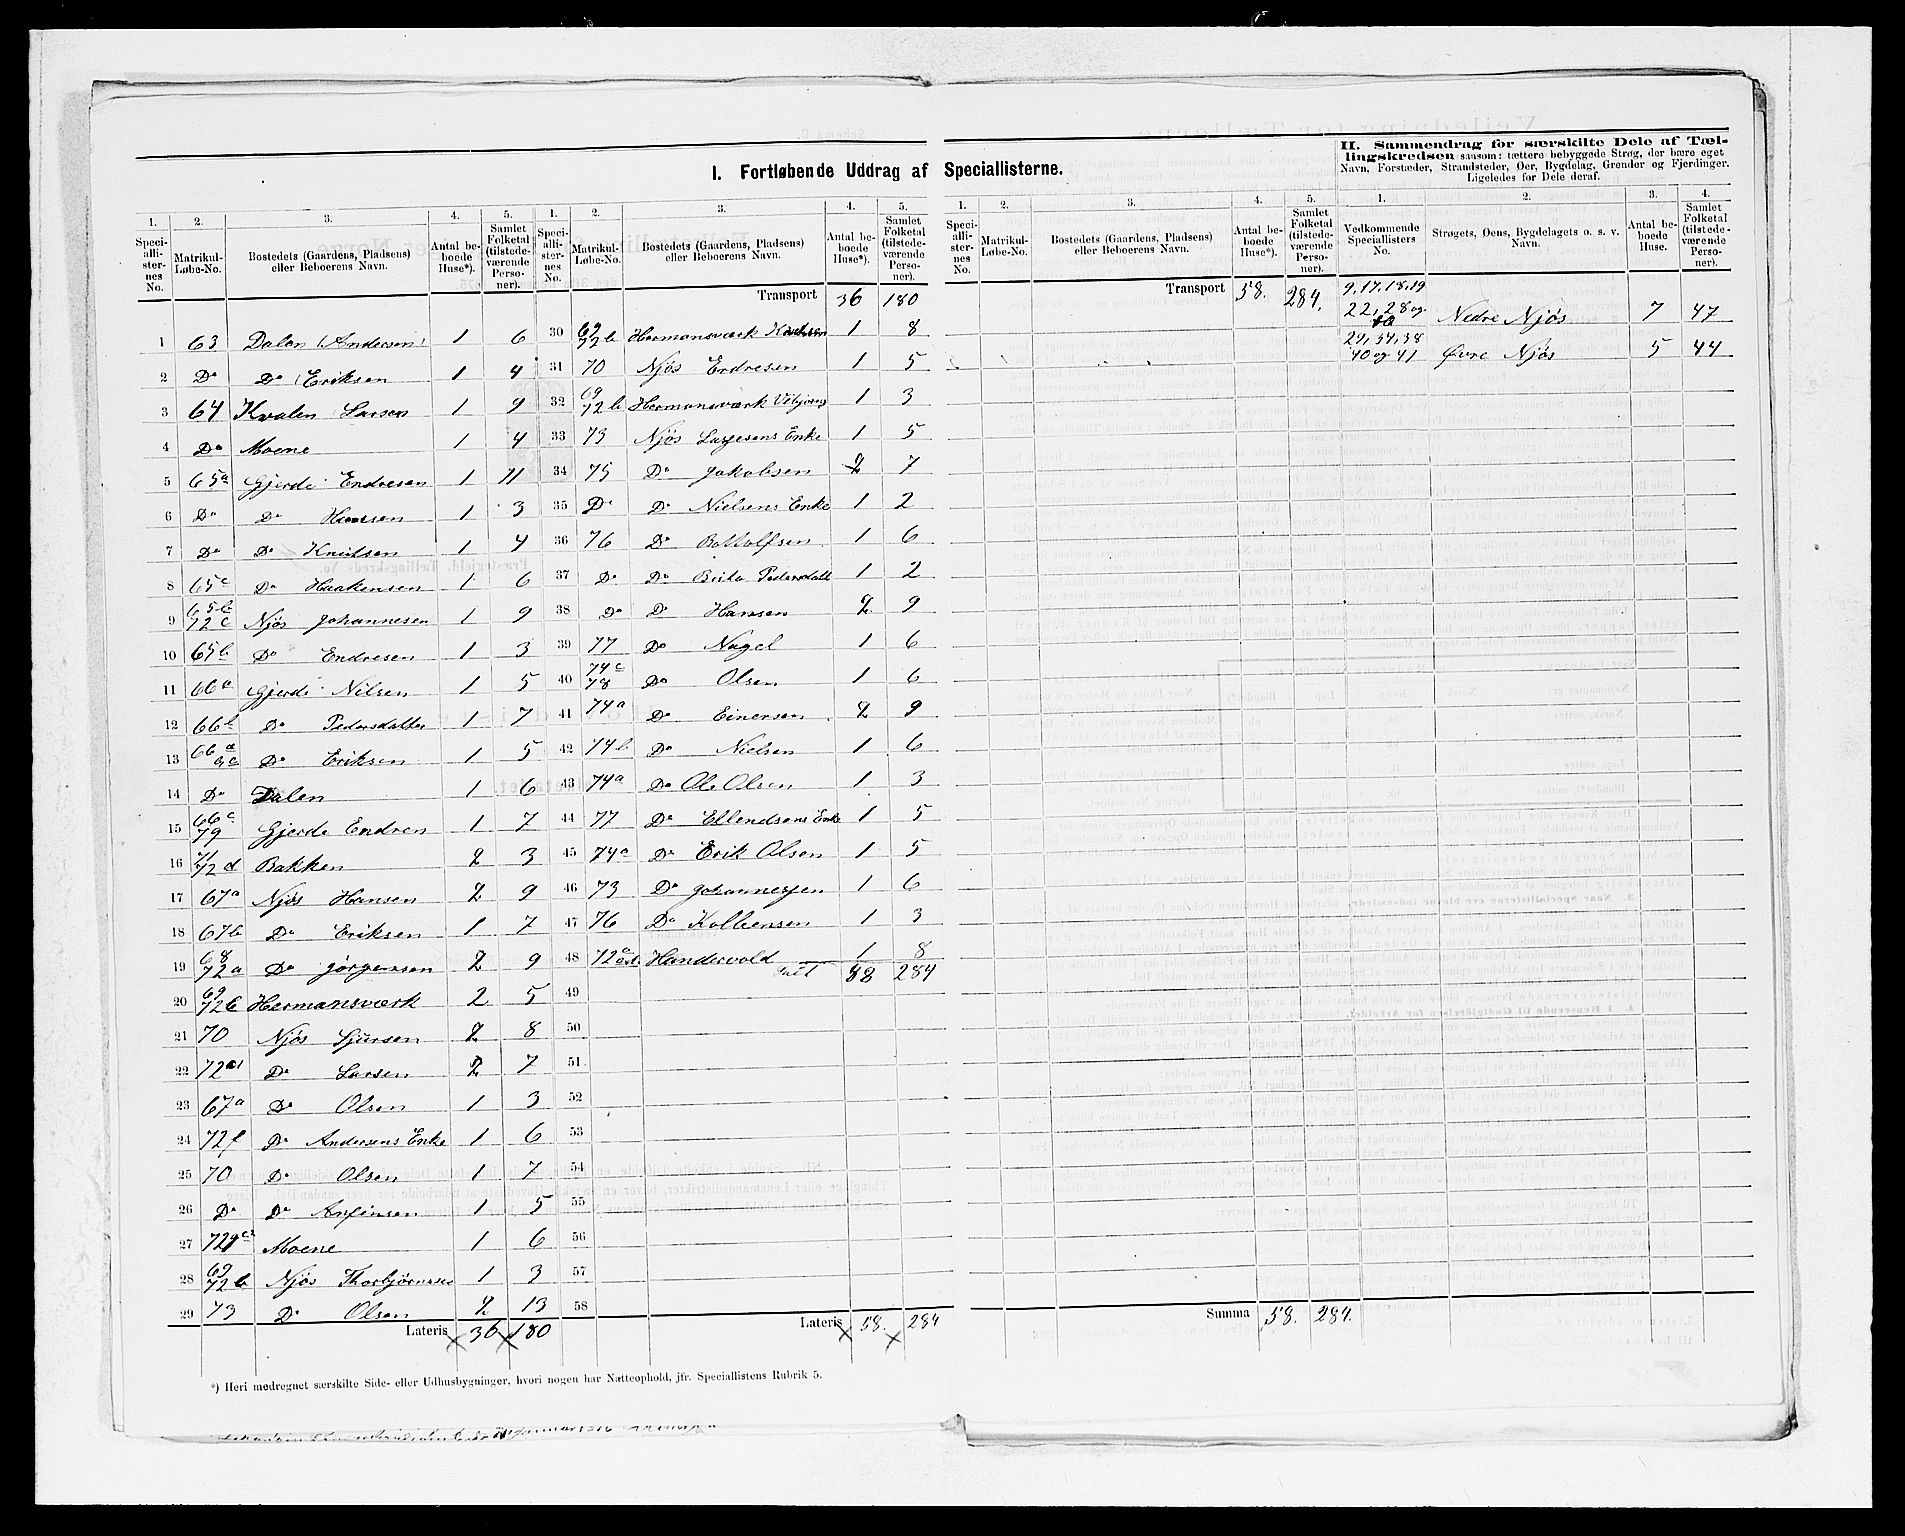 I. Fortløbende Uddrag af Speciallisterne.
II. Sammendrag for særskilte Dele af Tællingskredsen saasom: tættere bebyggede Strøg, der bære eget
Navn, Forstæder, Strandsteder, Øer, Bygdelag, Grender og Fjerdinger.
Ligeledes for Dele deraf.
1. 2. 3. 4. 5. 1. 2. 3. 4. 5. 1. 2. 3. 4. 5. 1. 2. 3. 4.
Speciallisternes No. Matrikul-Løbe-No. Bostedets (Gaardens, Pladsens) eller Beboerens Navn. Antal beboede Huse*). Samlet Folketal (tilstedeværende Personer).
Speciallisternes No. Matrikul-Løbe-No. Bostedets (Gaardens, Pladsens) eller Beboerens Navn. Antal beboede Huse*). Samlet Folketal (tilstedeværende Personer).
Speciallisternes No. Matrikul-Løbe-No. Bostedets (Gaardens, Pladsens) eller Beboerens Navn. Antal beboede Huse*). Samlet Folketal (tilstedeværende Personer).
Vedkommende Speciallisters No. Strøgets, Øens, Bygdelagets o. s. v. Navn. Antal beboede Huse. Samlet Folketal (tilstedeværende Personer).
1 63 Dalen (Andersen) 1 6
2 Do Do (Eriksen 1 4
3 64 Kvalen Larsen 1 9
4 Do Moene 1 4
5 65a Gjerde Endresen 1 11
6 Do Do Hansen 1 3
7 Do Do Knutsen 1 4
8 65c Do Haakensen 1 6
9 65b 72c Njøs Johannesen 1 9
10 65b Do Endresen 1 3
11 66a Gjerde Nilsen 1 5
12 66b Do Pedersdatter 1 7
13 66a Do Eriksen 1 5
14 Do Dalen 1 6
15 66c 79 Gjerde Endren 1 7
16 71 72d Bakken 2 3
17 67a Njøs Hansen 2 9
18 67b Do Eriksen 1 7
19 68 72a Do Jørgensen 2 9
20 69 72b Hermansværk 2 5
21 70 Njøs Sjursen 2 8
22 72 Do Larsen 2 7
23 67a Do Olsen 1 3
24 72f Do Andersens Enke 1 6
25 70 Do Olsen 1 7
26 Do Do Anfinsen 1 5
27 72 Moene 1 6
28 69 72b Njøs Thorbjørnsen 1 3
29 73 Do Olsen 2 13
Lateris 36 180
Transport 36 180
30 69 72b Hermansværk Knudsen 1 8
31 70 Njøs Endresen 1 5
32 69 72b Hermansværk 1 3
33 73 Njøs Lassesens Enke 1 5
34 75 Do Jakobsen 2 7
35 Do Do Nielsens Enke 1 2
36 76 Do Bottolfsen 1 6
37 Do Do Brita Pedersdatt 1 2
38 Do Do Hansen 2 9
39 77 Do Nagel 1 6
40 74c 78 Do Olsen 1 6
41 74a Do Einersen 2 9
42 74b Do Nielsen 1 6
43 74a Do Ole Olsen 1 3
44 77 Do Ellendsens Enke 1 5
45 74a Do Erik Olsen 1 5
46 73 Do Johannesen 1 6
47 76 Do Kolbensen 1 3
48 72 Handevold 1 8
58 284
49
50
51
52
53
54
55
56
57
58
Lateris 58. 284
Transport 58. 284.
Summa 58. 284.
9, 17, 18, 19
22, 28 og Nedre Njøs 7 47
29, 34, 38
40 og 41 Øvre Njøs 5 44
*) Heri medregnet særskilte Side- eller Udhusbygninger, hvori nogen har Natteophold, jfr. Speciallistens Rubrik 5.